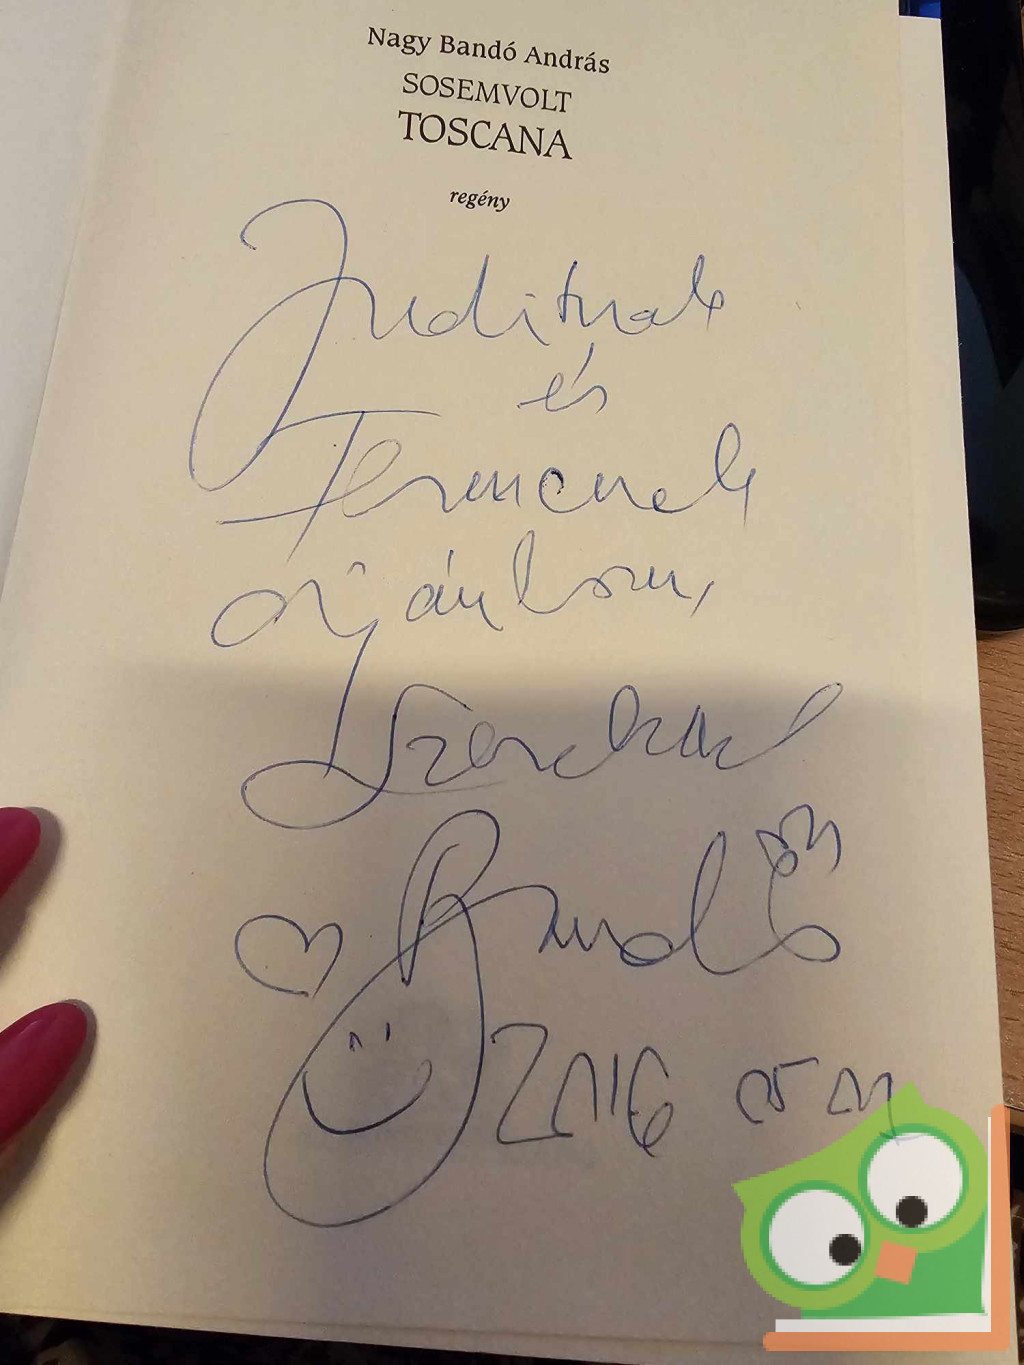 Nagy Bandó András
SOSEMVOLT
TOSCANA
regény
Juditnak
és
Ferencnek
ajánlom,
Szeretettel
Bandó
2016